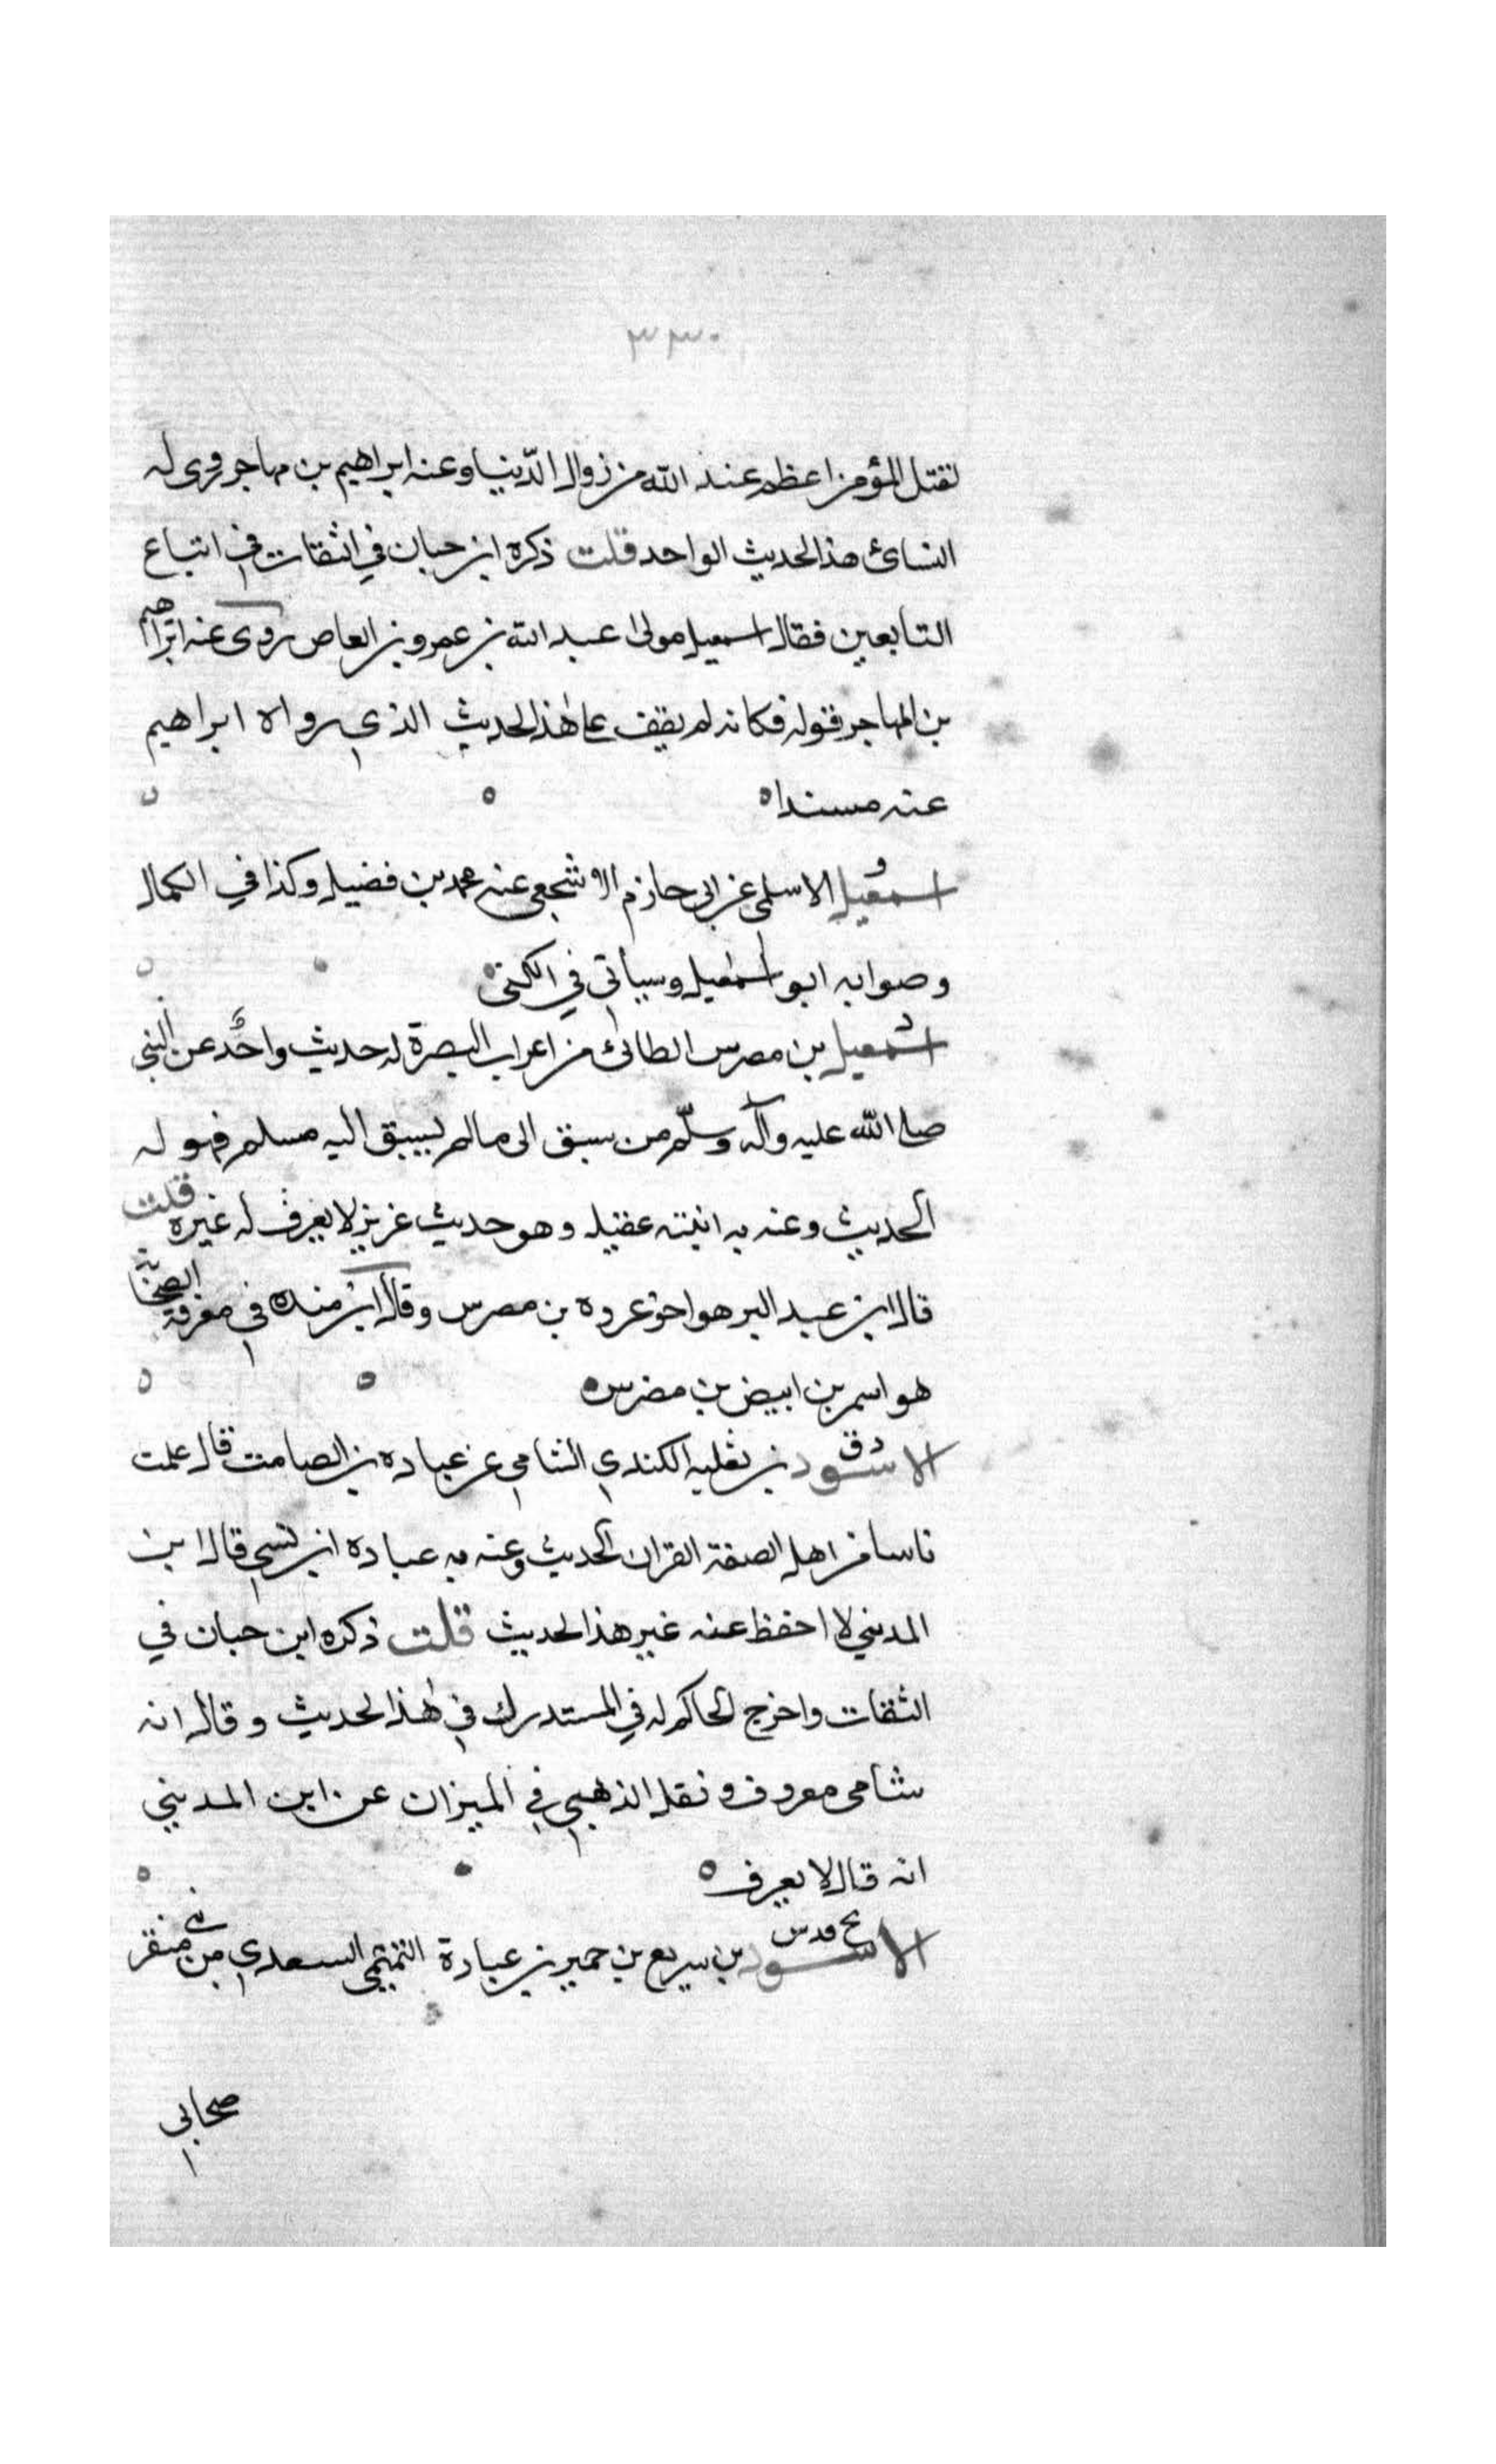 ٣٣٠
لقتل المؤمن اعظم عند الله من زوال الدّنيا وعنه ابراهيم بن مهاجر روى له
النسائى هذا الحديث الواحد قلت ذكره ابن حبان في الثقات في اتباع
التابعين فقال اسمعيل مولى عبد الله بن عمرو بن العاص روى عنه ابراهيم
بن المهاجر قوله فكانه لم يقف على هذا الحديث الذي رواه ابراهيم
عنه مسندا ه
اسمعيل الاسلمى عن ابى حازم الاشجعى عنه محمد بن فضيل وكذا في الكمال
وصوابه ابو اسمعيل وسيأتى في الكنى
د
اسمعيل بن مضرس الطائى من اعراب البصرة له حديث واحد عن النبي
صلى الله عليه وآله وسلّم من سبق الى مالم يسبق اليه مسلم فهو له
الحديث وعنه به ابنته عقيله وهو حديث غريب لا يعرف له غيره قلت
قال ابن عبد البر هو اخو عروه بن مضرس وقال ابن منده في معرفة الصحابة
هو اسمر بن ابيض بن مضرس ه
د ق
الاسود بن ثعلبه الكندي الشامي عن عباده بن الصامت قال علمت
ناسا من اهل الصفة القران الحديث وعنه به عباده ابن نسي قال ابن
المديني لا احفظ عنه غير هذا الحديث قلت ذكره ابن حبان في
الثقات واخرج الحاكم له في المستدرك في هذا الحديث وقال انه
شامى معروف ونقل الذهبي في الميزان عن ابن المديني
انه قال لا يعرف ه
بخ قدس
الاسود بن سريع بن حمير بن عبادة التميمي السعدي من بني منقر
صحابي